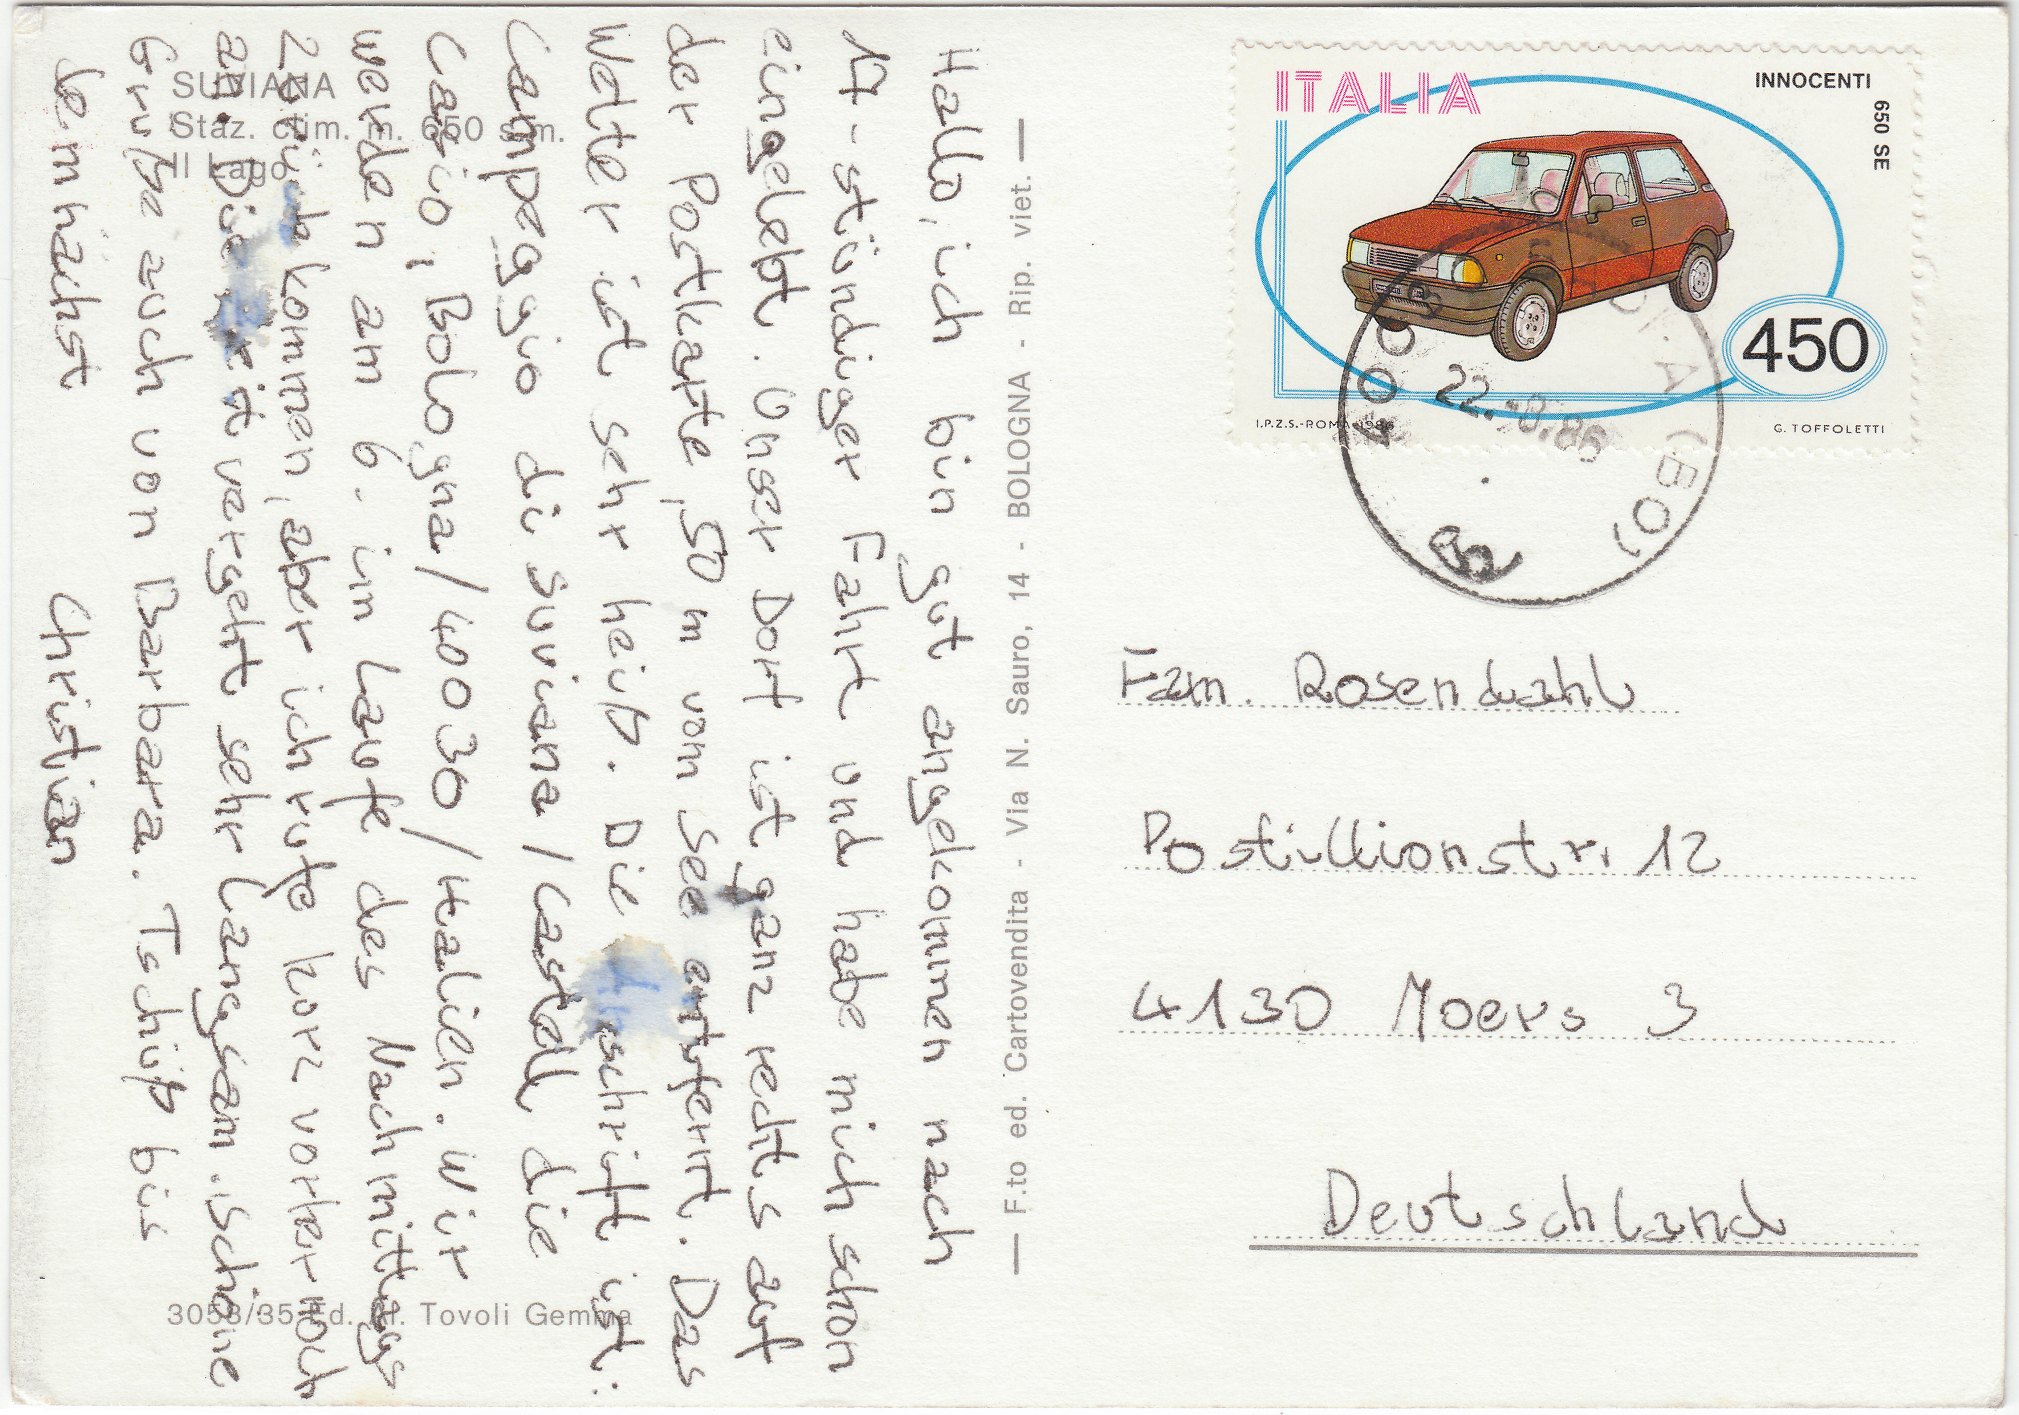 SUVIANA
Staz. clim. m. 650 s.m.
Il Lago
Hallo, ich bin gut angekommen nach
17-stündiger Fahrt und habe mich schon
eingelebt. Unser Dorf ist ganz rechts auf
der Postkarte, 50 m vom See entfernt. Das
Wetter ist sehr heiß. Die Anschrift ist:
Campeggio di Suviana / Castel di
Casio, Bologna / 40030 / Italien. Wir
werden am 6. im Laufe des Nachmittags
zurückkommen, aber ich rufe kurz vorher noch
an. Die Zeit vergeht sehr langsam. Schöne
Grüße auch von Barbara. Tschüß bis
demnächst
Christian
3053/35 Ed. Tovoli Gemma
F.to ed. Cartovendita - Via N. Sauro, 14 - BOLOGNA - Rip. viet.
ITALIA
INNOCENTI
650 SE
450
I.P.Z.S.-ROMA 1986
G. TOFFOLETTI
22.-8.86
(BO)
Fam. Rosendahl
Postillionstr. 12
4130 Moers 3
Deutschland